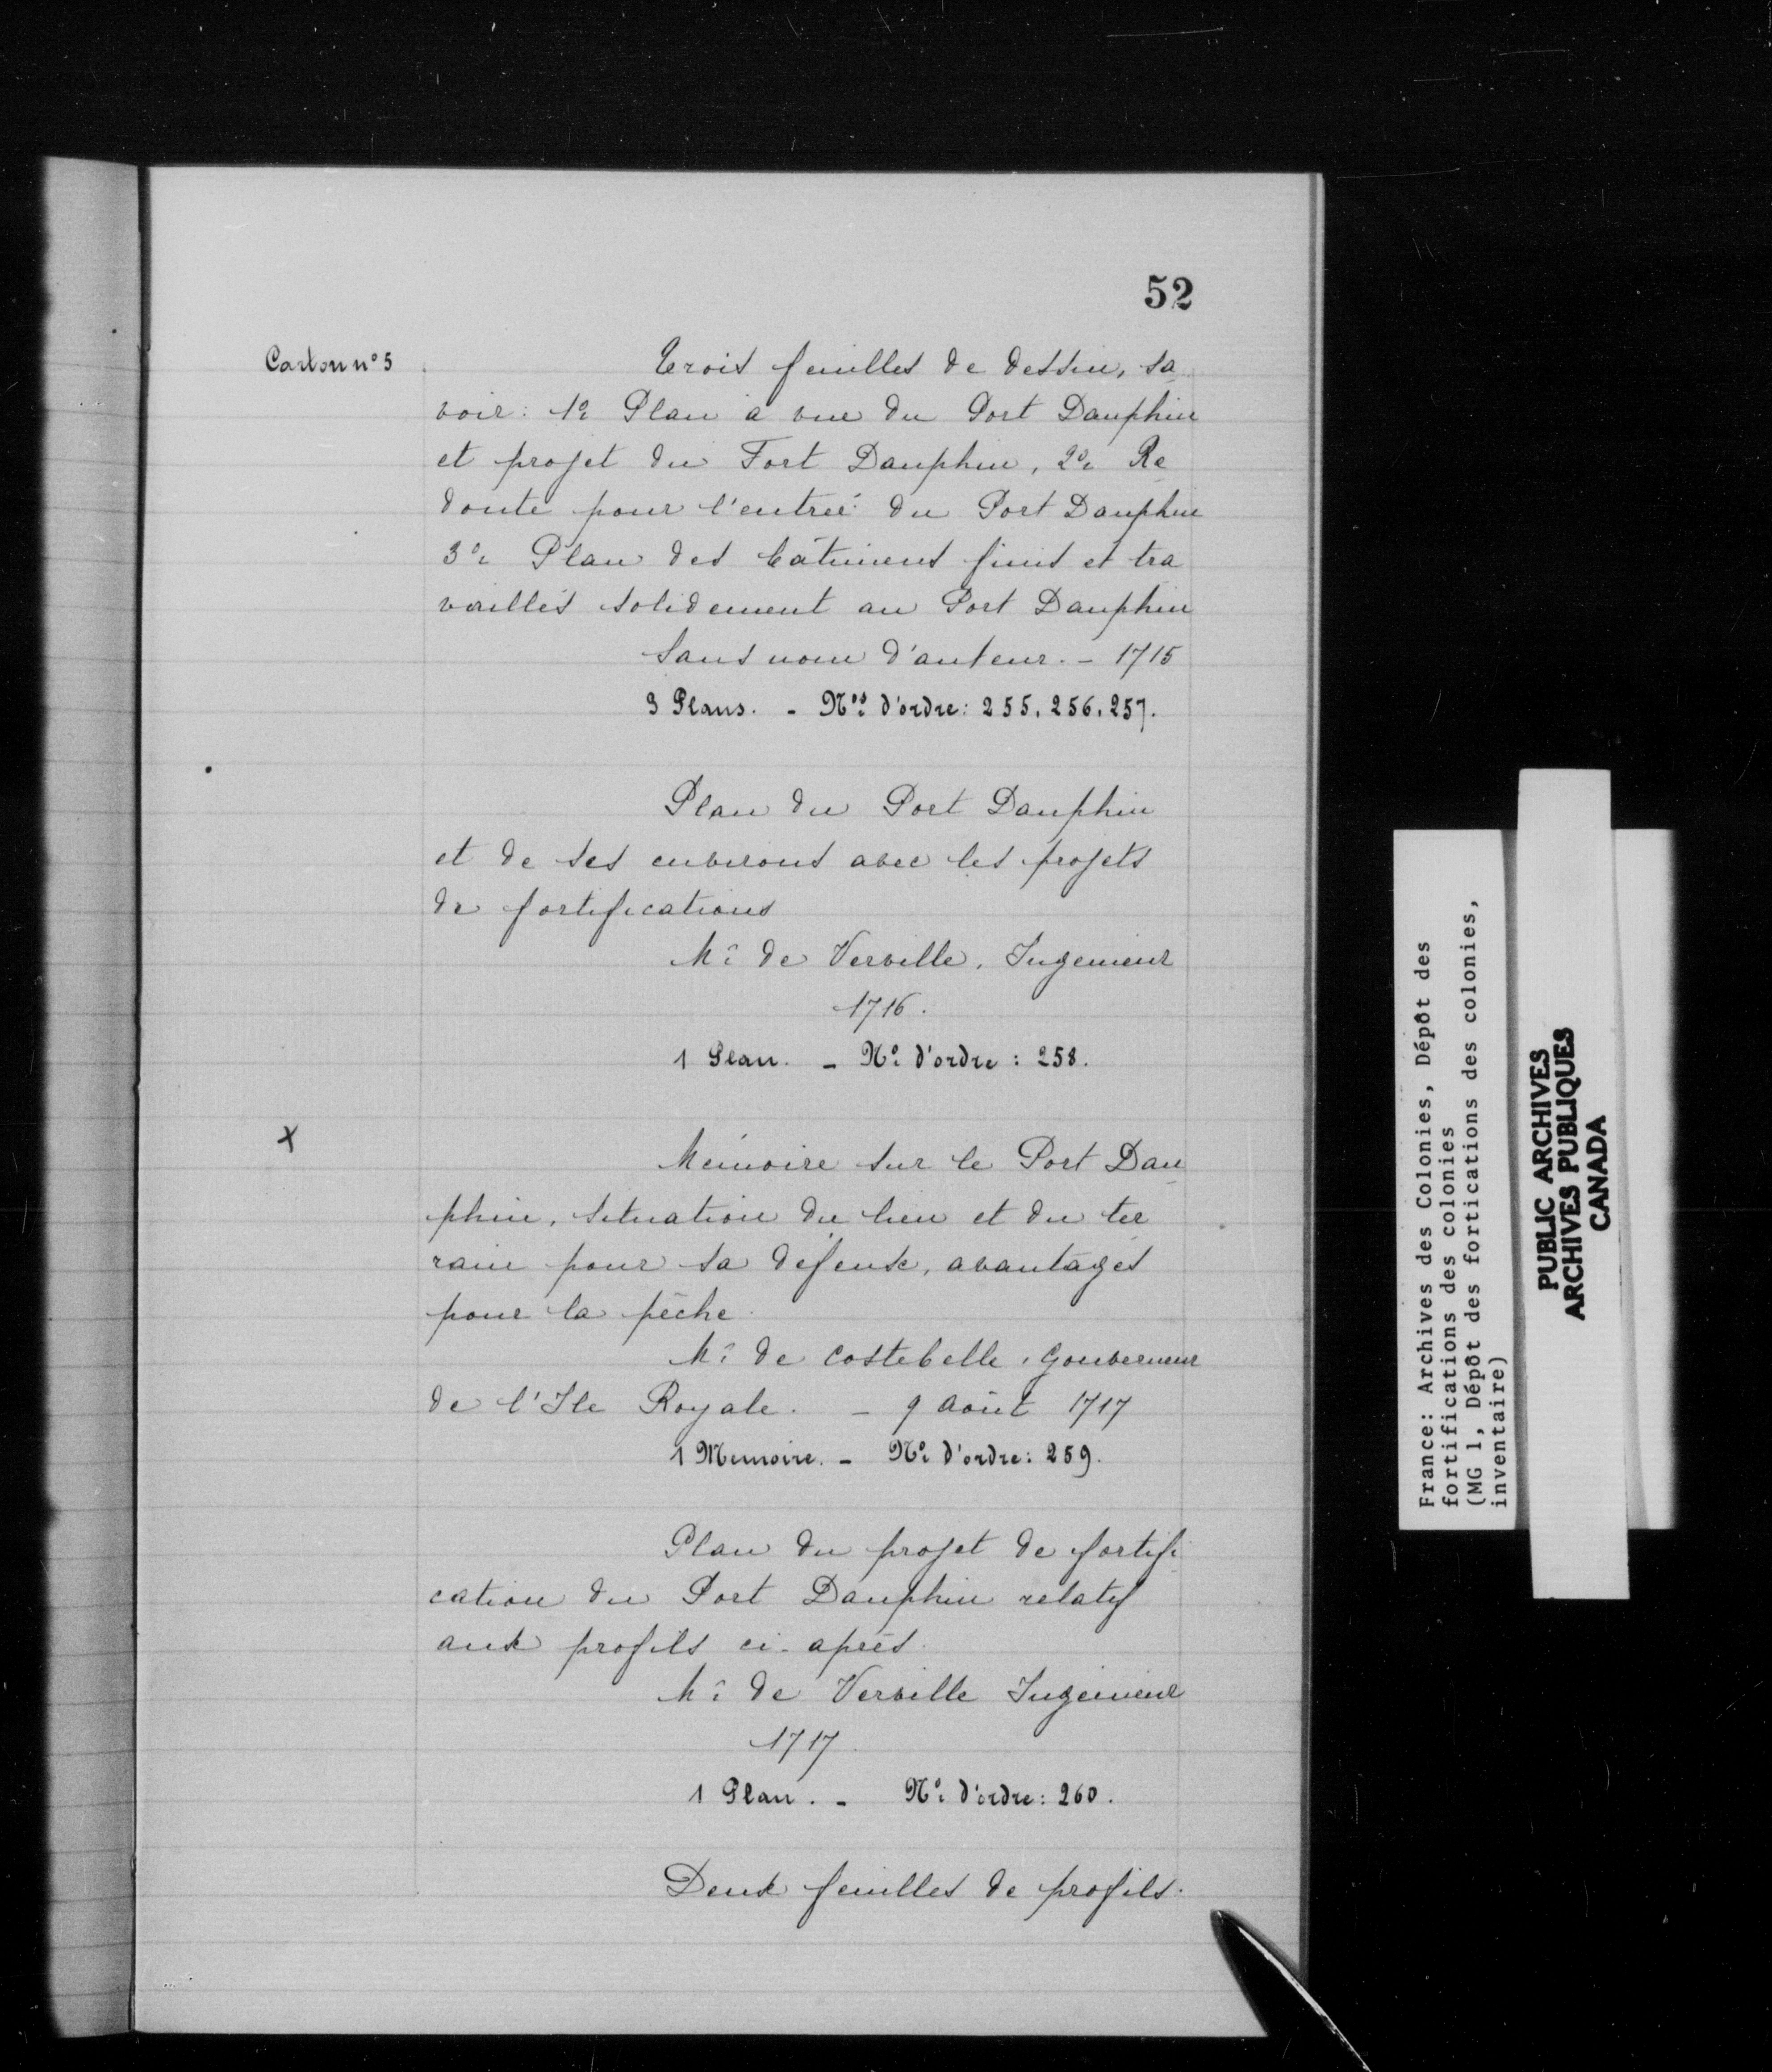 52
Carton n° 5
Trois feuilles de dessin, sa
voir: 1° Plan à vue du Port Dauphin
et projet du Fort Dauphin, 2° Re
doute pour l'entrée du Port Dauphin
3° Plan des bâtimens finis et tra
vaillés solidement au Port Dauphin
Sans nom d'auteur. - 1715
3 Plans. - Nos d'ordre: 255, 256, 257.
Plan du Port Dauphin
et de ses environs avec les projets
de fortifications
Mr de Verville, Ingenieur
1716.
1 Plan. - N° d'ordre: 258.
X
Mémoire sur le Port Dau
phin, situation du lieu et du ter
rain pour sa défense, avantages
pour la pêche.
Mr de Costebelle, Gouverneur
de l'Ile Royale. - 9 Août 1717
1 Memoire. - N° d'ordre: 259.
Plan du projet de fortifi
cation du Port Dauphin relatif
aux profils ci-après.
Mr de Verville Ingénieur
1717.
1 Plan. - N° d'ordre: 260.
Deux feuilles de profils.
France: Archives des Colonies, Dépôt des
fortifications des colonies
(MG 1, Dépôt des fortications des colonies,
inventaire)
PUBLIC ARCHIVES
ARCHIVES PUBLIQUES
CANADA